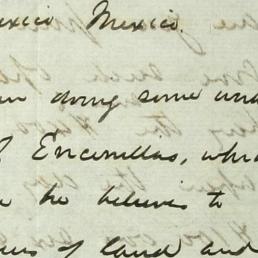 exico Mexico.
doing some
Encenillas, whi
he believes to
of land and